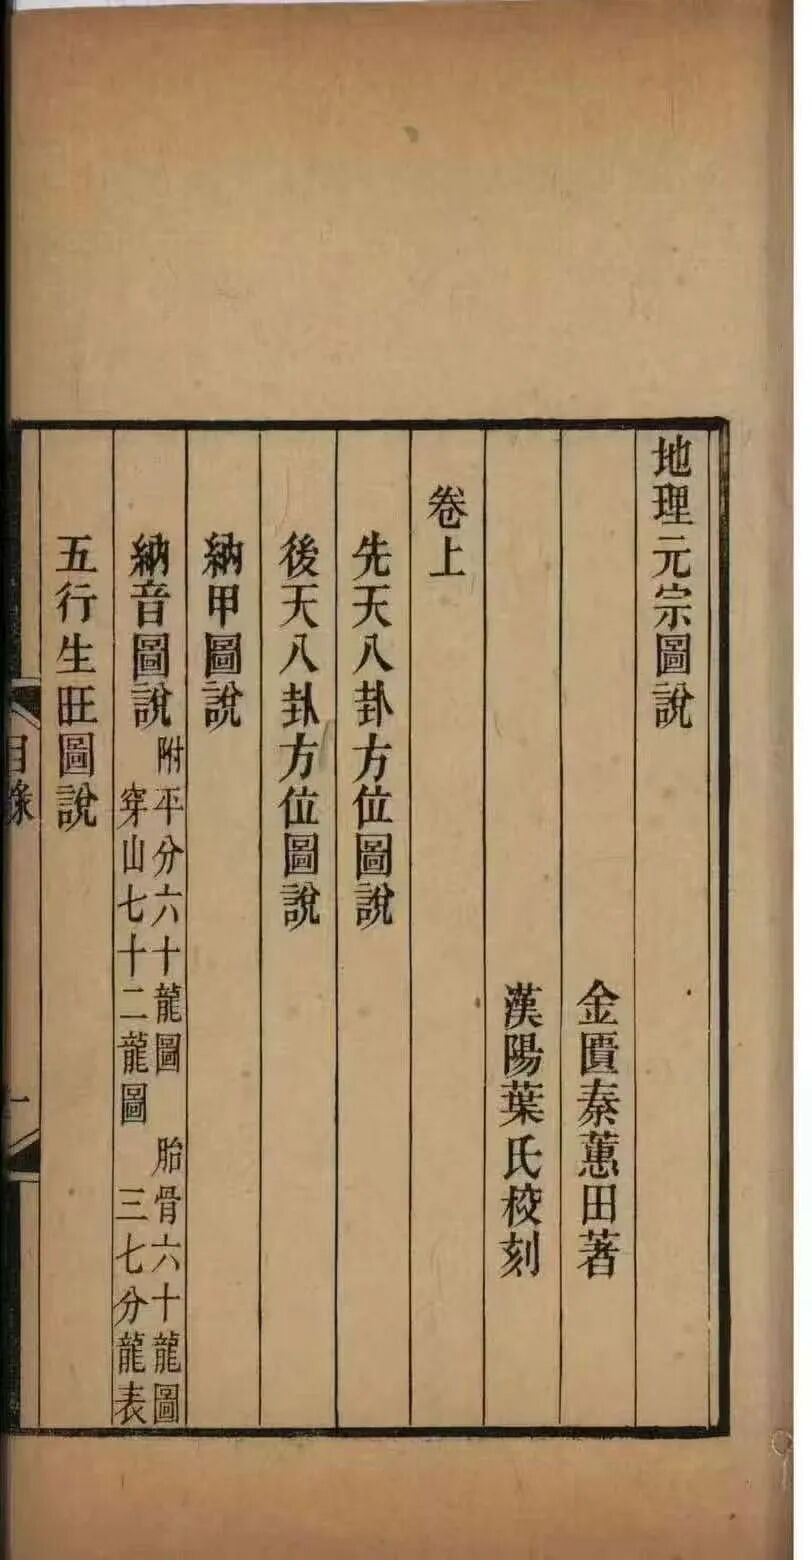 地理元宗圖說
金匱秦蕙田著
漢陽葉氏校刻
卷上
先天八卦方位圖說
後天八卦方位圖說
納甲圖說
納音圖說
附平分六十龍圖 胎骨六十龍圖
穿山七十二龍圖 三七分龍表
五行生旺圖說
目錄
一